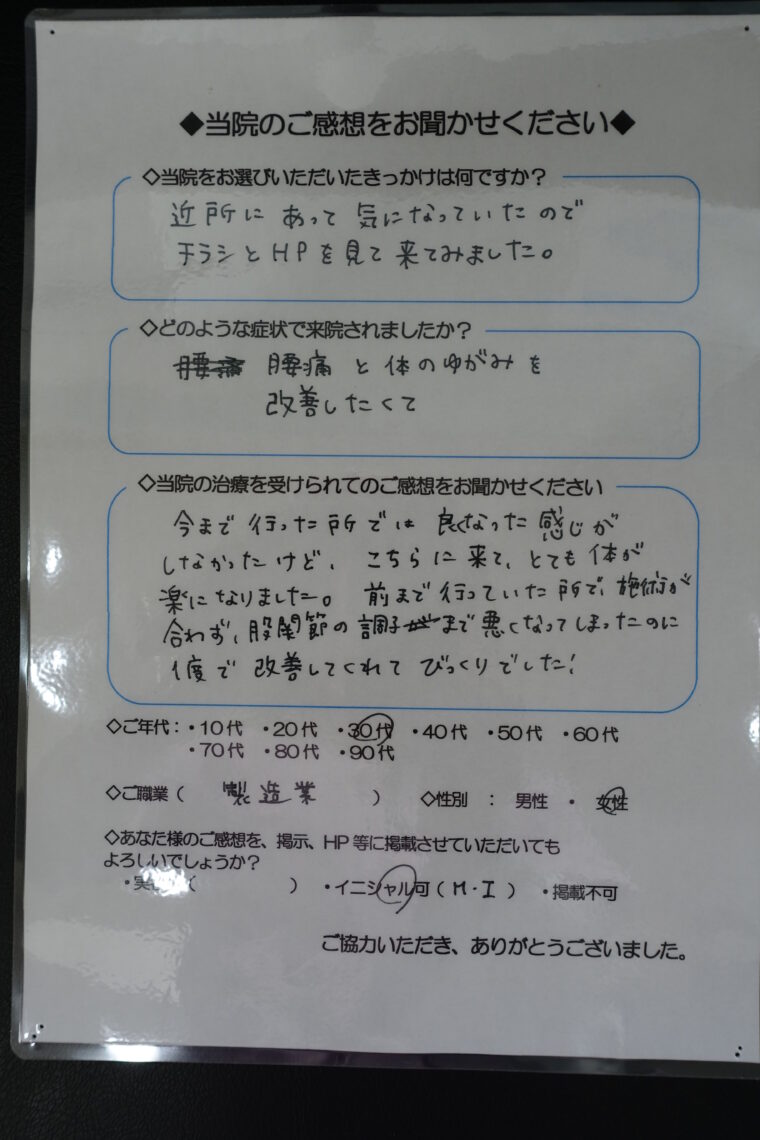 ◆当院のご感想をお聞かせください◆
◇当院をお選びいただいたきっかけは何ですか？
近所にあって気になっていたので
チラシとHPを見て来てみました。
◇どのような症状で来院されましたか？
腰痛 腰痛と体のゆがみを
改善したくて
◇当院の治療を受けられてのご感想をお聞かせください
今まで行った所では良くなった感じが
しなかったけど、こちらに来て、とても体が
楽になりました。前まで行っていた所で、施術が
合わず、股関節の調子まで悪くなってしまったのに
1度で改善してくれてびっくりでした！
◇ご年代：・10代 ・20代 ・30代 ・40代 ・50代 ・60代
・70代 ・80代 ・90代
◇ご職業（ 製造業 ） ◇性別 ： 男性 ・ 女性
◇あなた様のご感想を、掲示、HP等に掲載させていただいても
よろしいでしょうか？
・実（ ） ・イニシャル可（ M・I ） ・掲載不可
ご協力いただき、ありがとうございました。